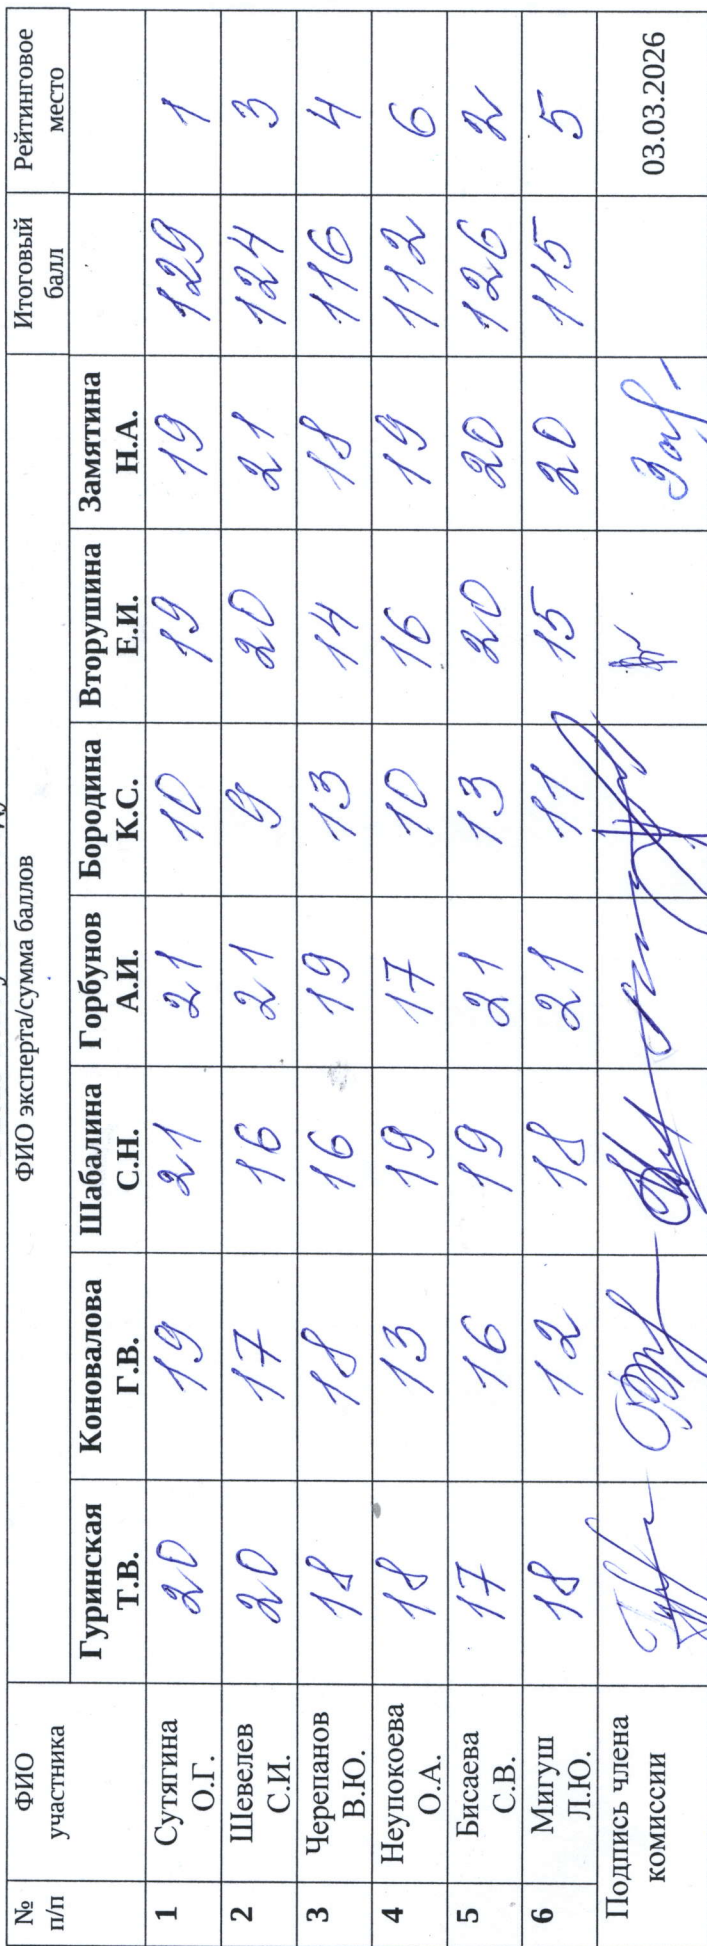 № п/п ФИО участника ФИО эксперта/сумма баллов Итоговый балл Рейтинговое место
Гуринская Т.В. Коновалова Г.В. Шабалина С.Н. Горбунов А.И. Бородина К.С. Вторушина Е.И. Замятина Н.А.
1 Сутягина О.Г. 20 19 21 21 10 19 19 129 1
2 Шевелев С.И. 20 17 16 21 9 20 21 124 3
3 Черепанов В.Ю. 18 18 16 19 13 14 18 116 4
4 Неупокоева О.А. 18 13 19 17 10 16 19 112 6
5 Бисаева С.В. 17 16 19 21 13 20 20 126 2
6 Мигуш Л.Ю. 18 12 18 21 11 15 20 115 5
Подпись члена комиссии 03.03.2026